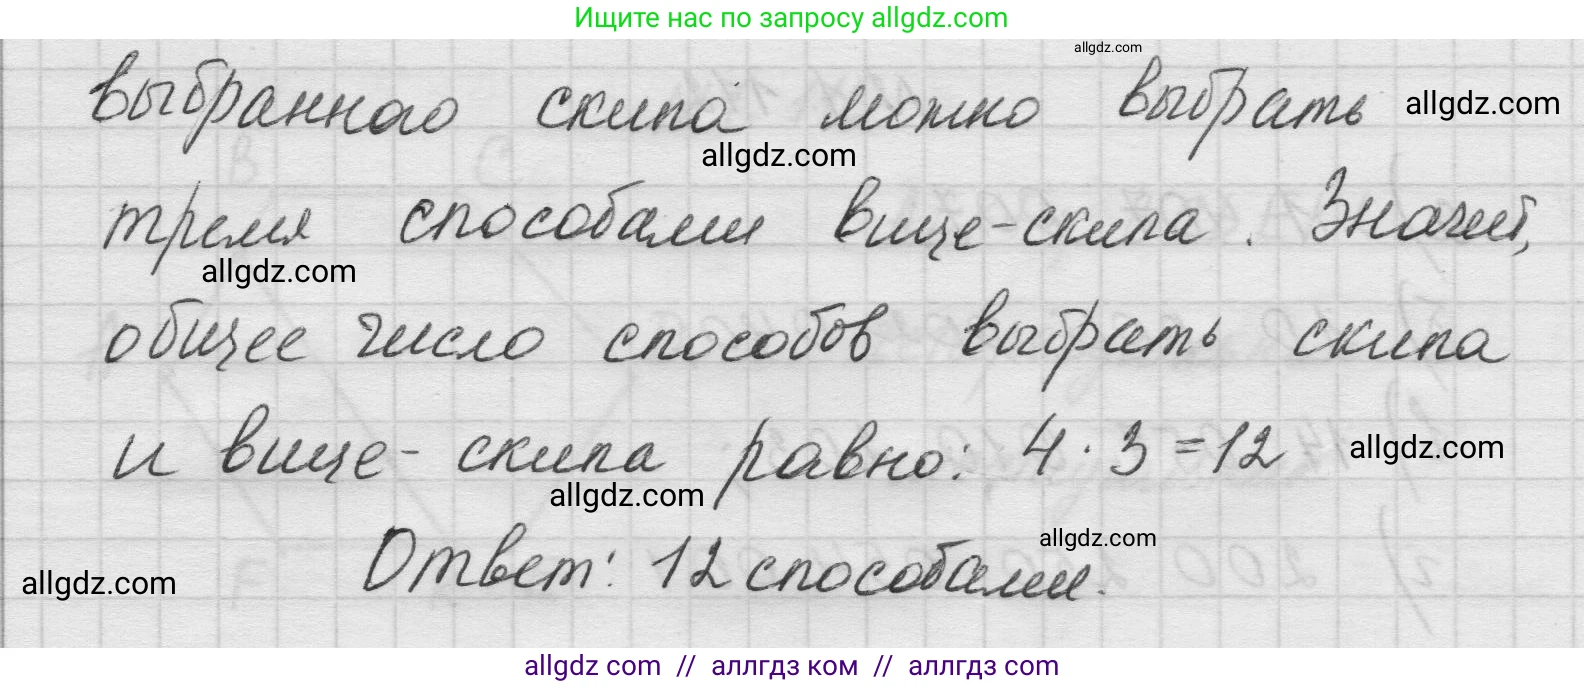 Ищите нас по запросу allgdz.com
allgdz.com
выбранного скипа можно выбрать
allgdz.com
allgdz.com
тремя способами вице-скипа. Значит,
allgdz.com
общее число способов выбрать скипа
и вице-скипа равно: 4 · 3 = 12
allgdz.com
allgdz.com
Ответ: 12 способами.
allgdz.com
allgdz.com
allgdz com // аллгдз ком // аллгдз com